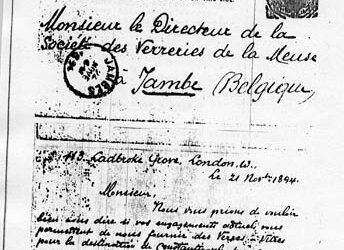 Monsieur le Directeur de la
Société des Verreries de la Meuse
à Jambe (Belgique)
JAMBES
113. Ladbroke Grove, London. W.
le 21 Novbre 1894.
Monsieur,
Nous vous prions de vouloir
bien nous dire si vos engagements actuels vous
permettent de nous fournir des Verres à Vitre
pour la destination de Constantinople